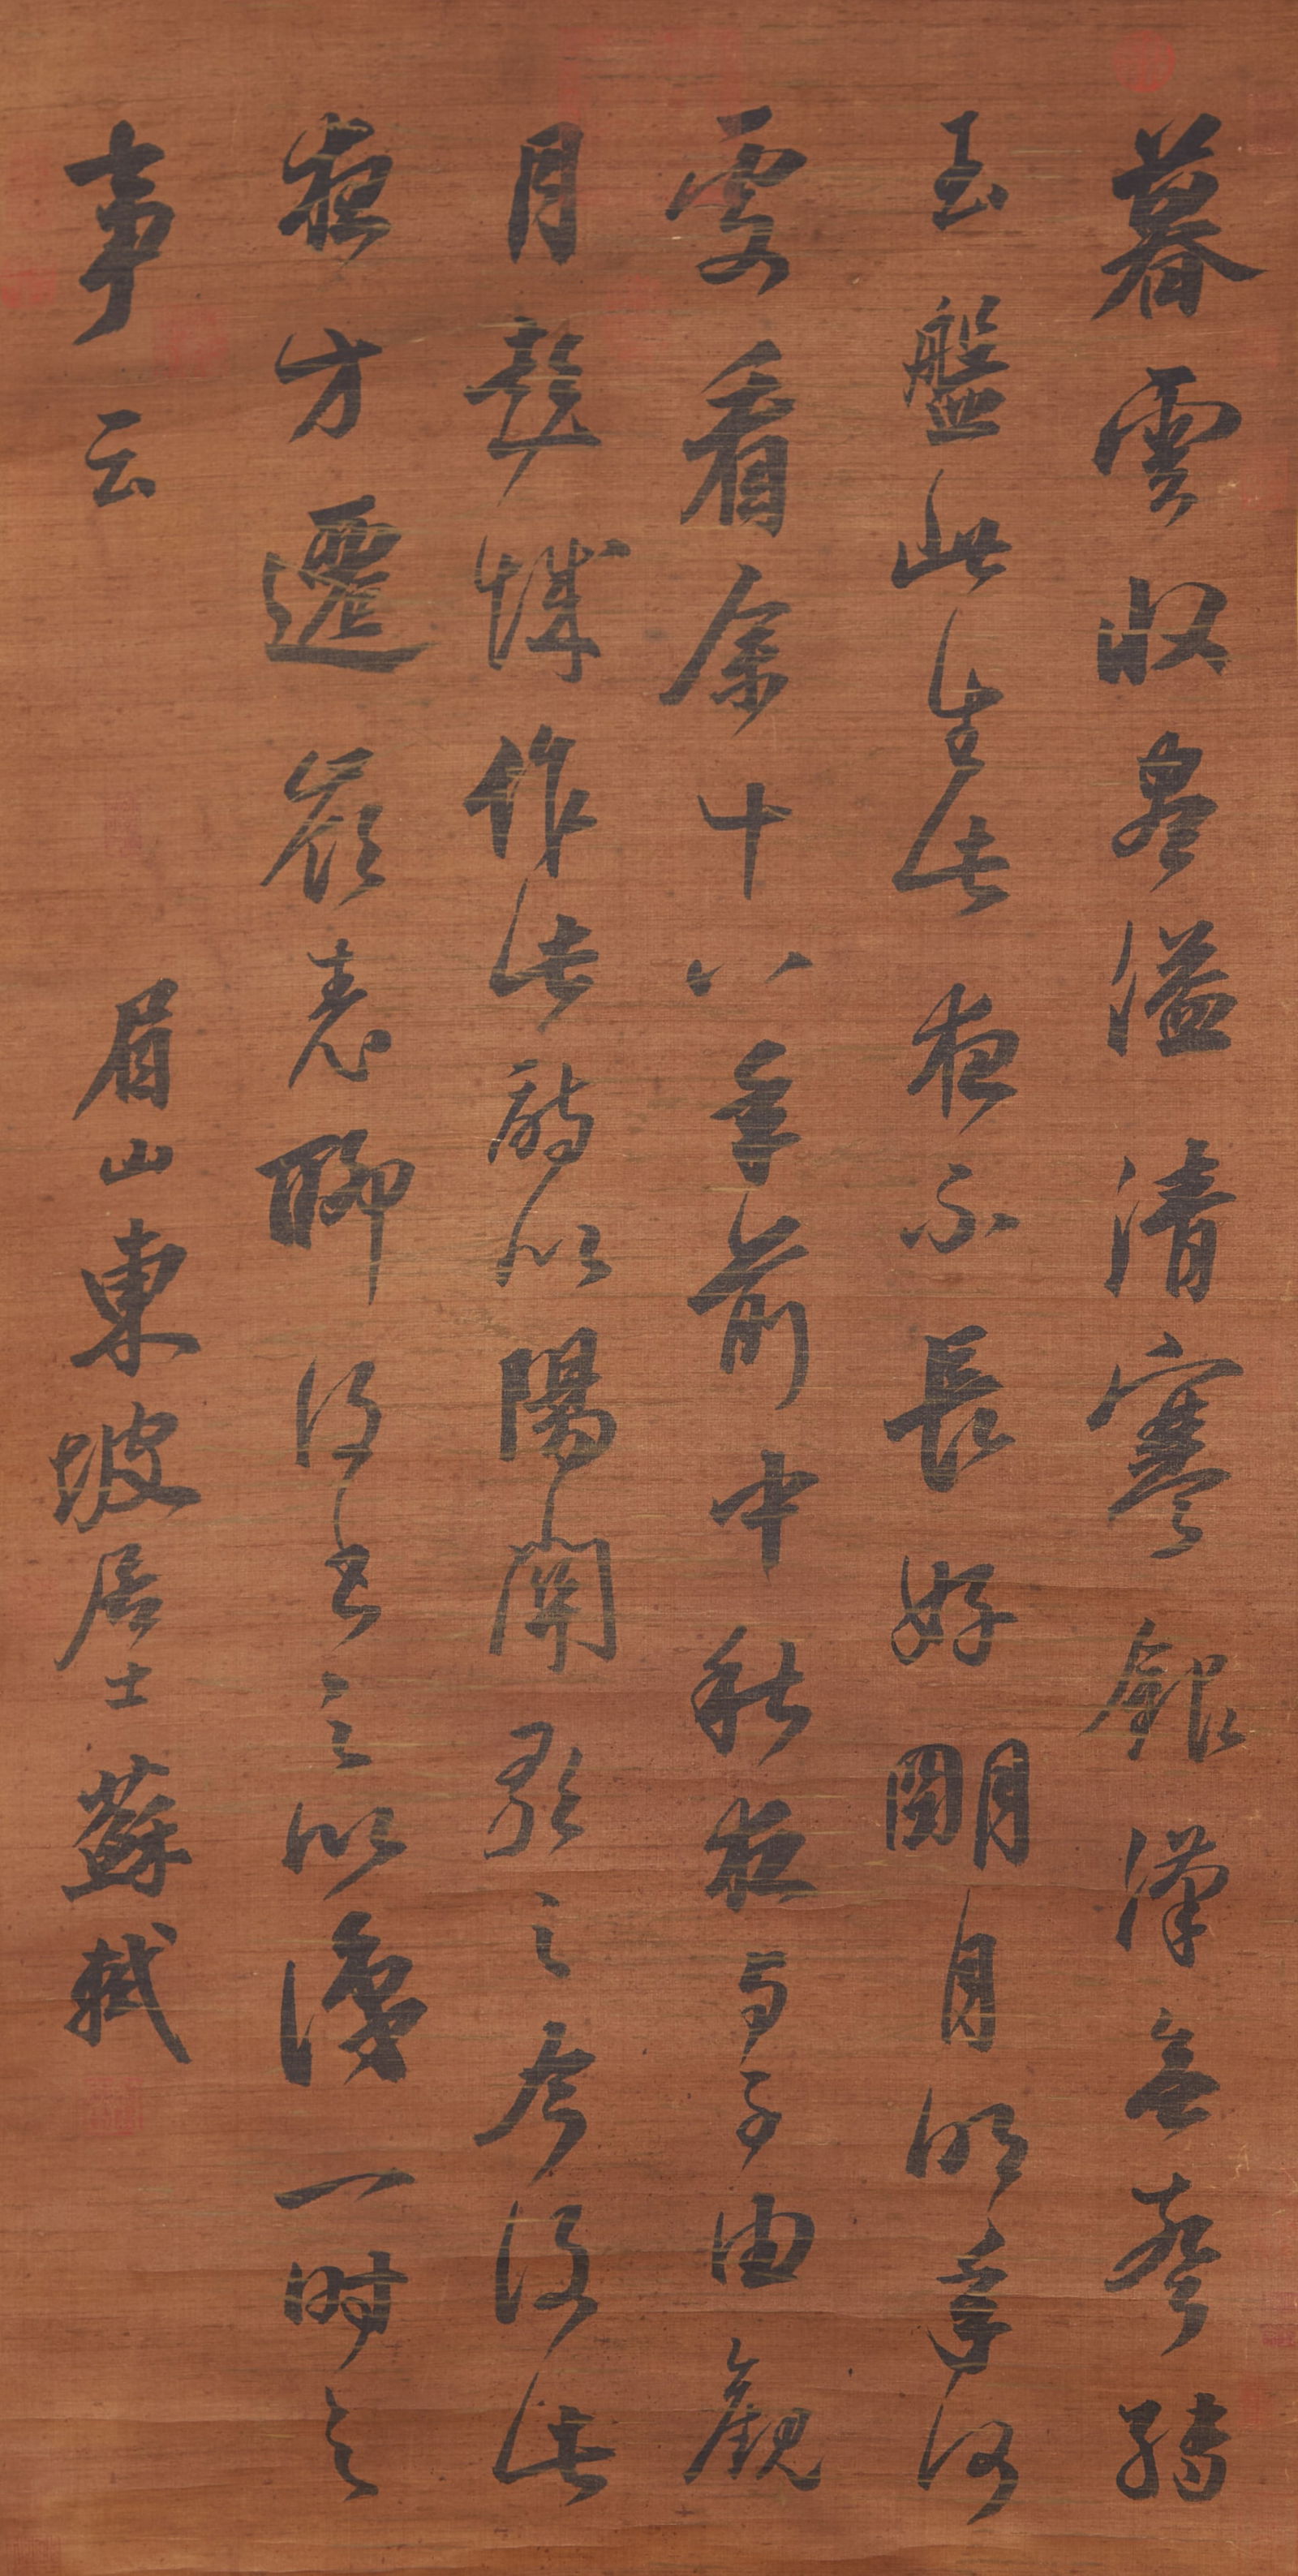 暮雲收盡溢清寒銀漢無聲轉
玉盤此生此夜不長好朙月明年何
處看余十八年前中秋夜与子由觀
月彭城作此詩以陽關歌之今復此
夜方遷嶺表聊復書之以一時之
事云
眉山東坡居士蘇軾